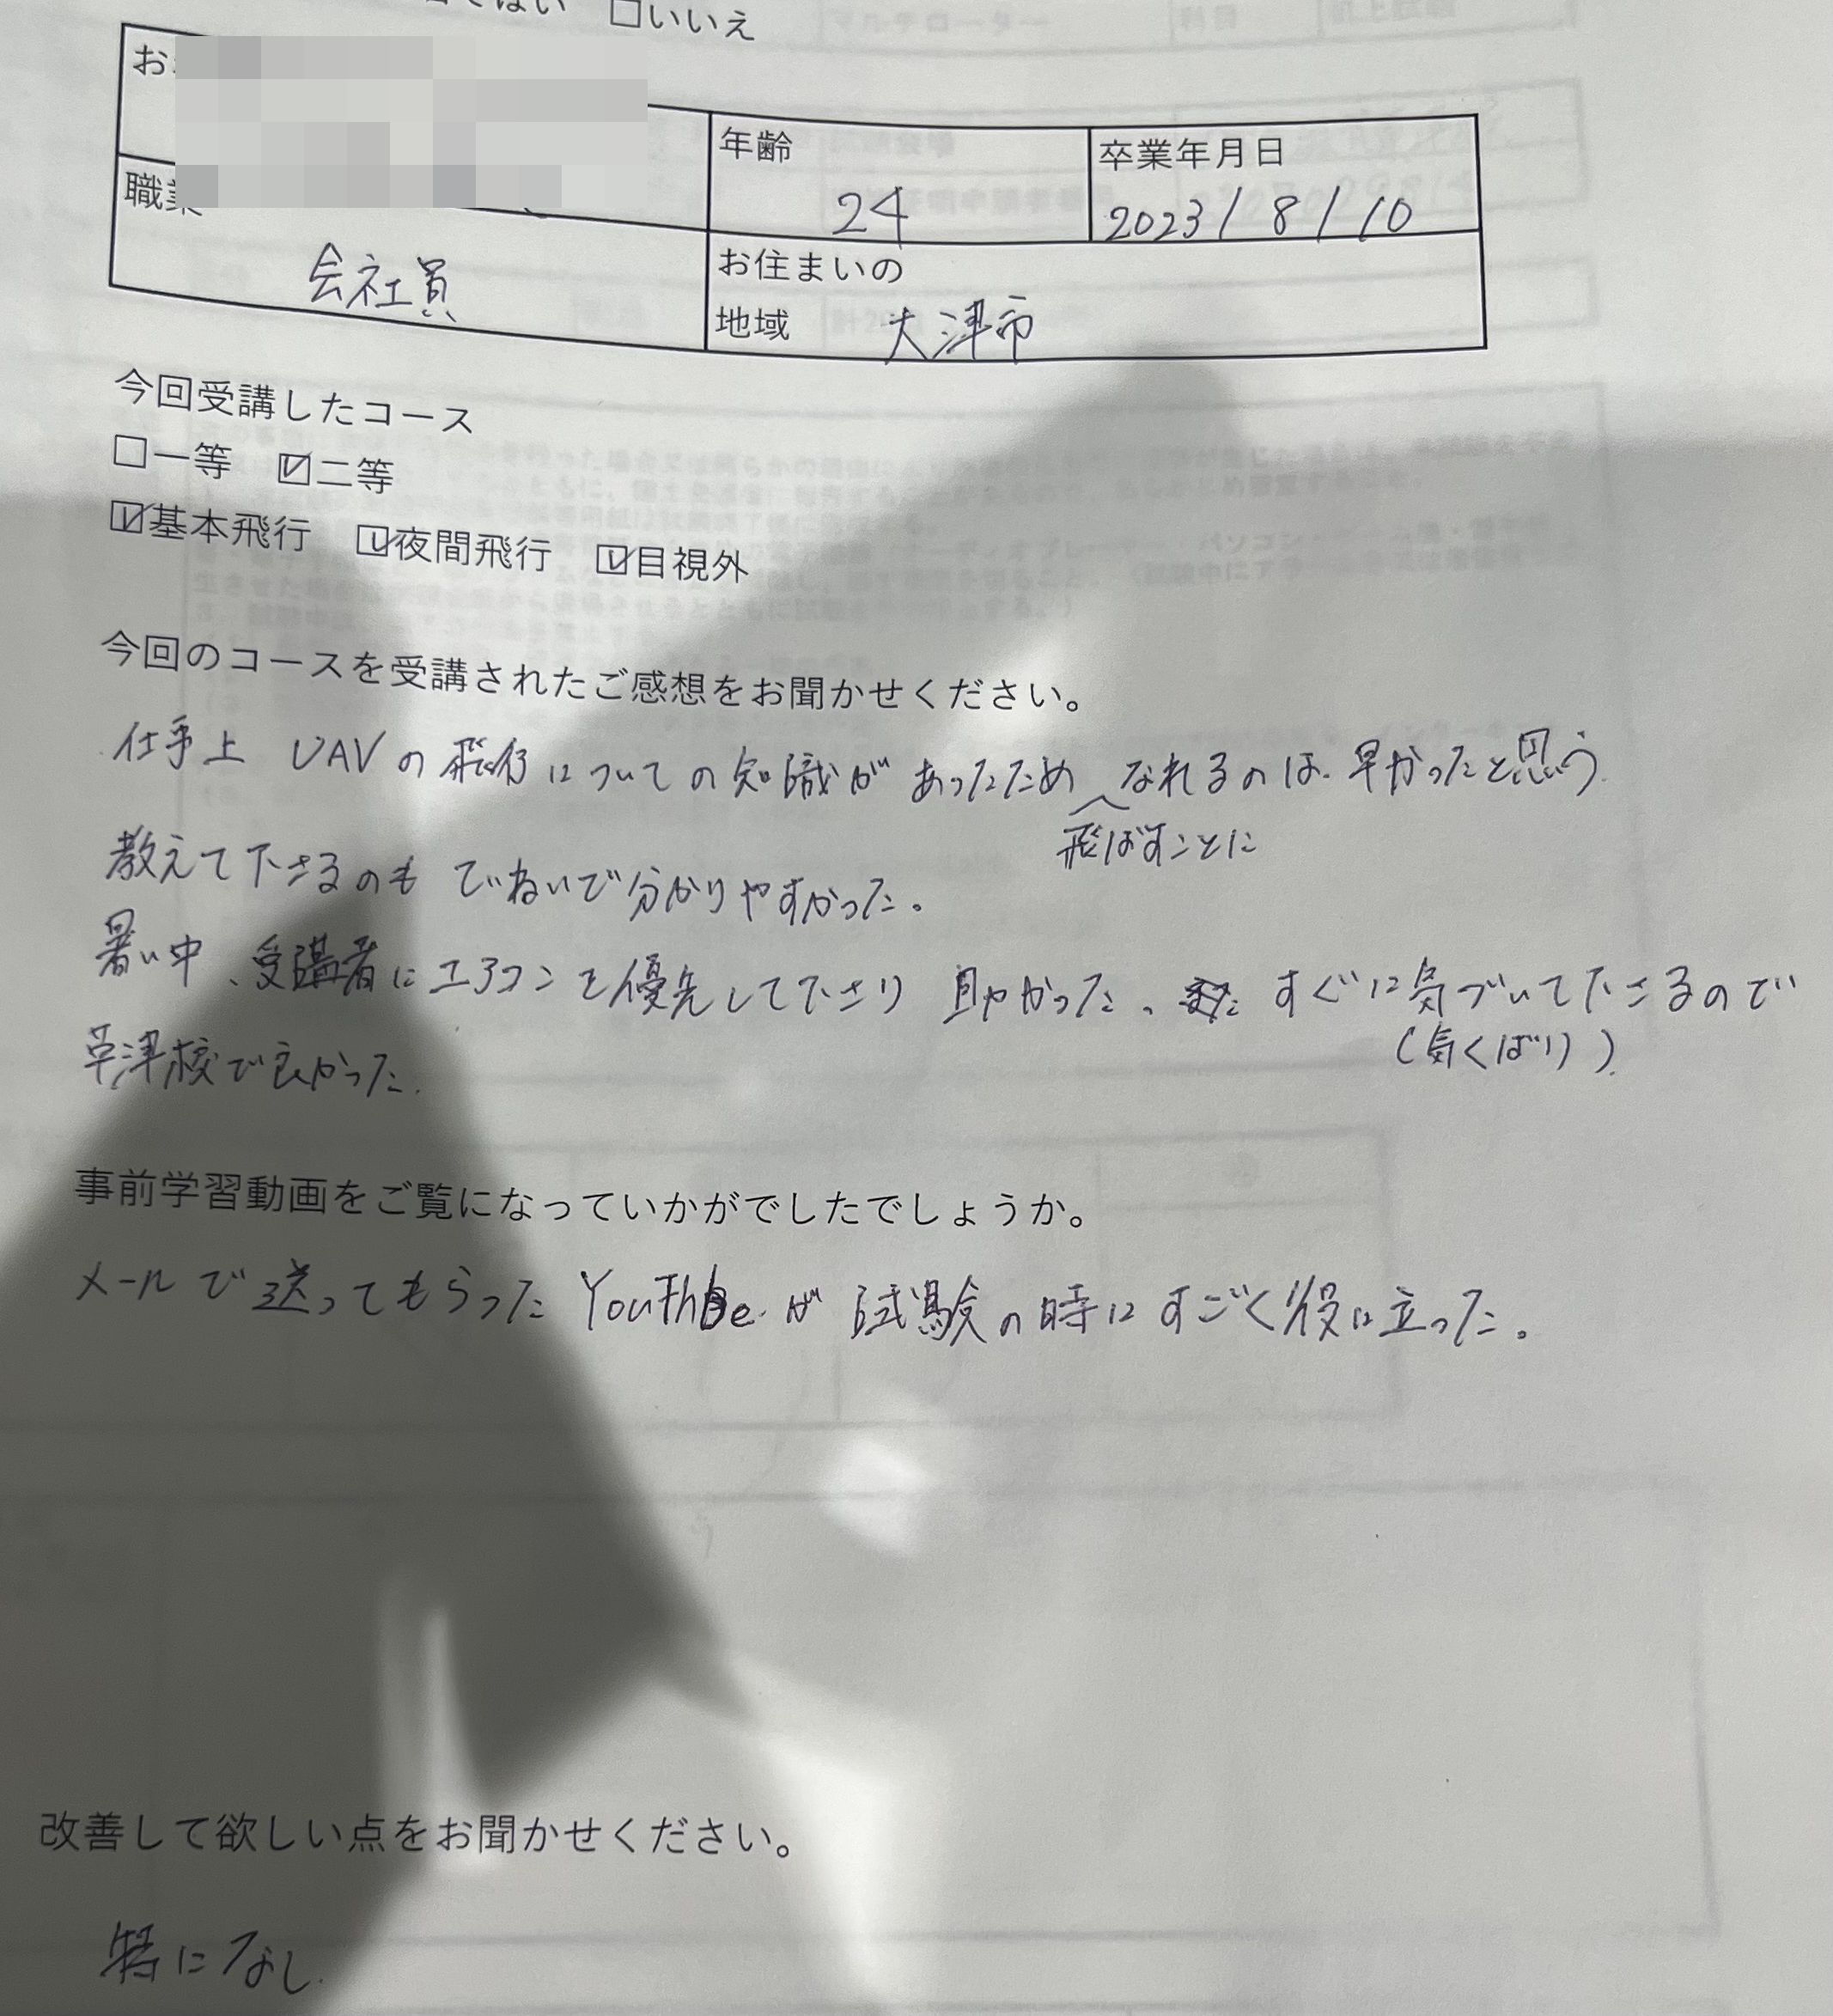 □いいえ
年齢
卒業年月日
24
2023/8/10
会社員
お住まいの
地域 大津市
今回受講したコース
□一等 ☑二等
☑基本飛行 ☑夜間飛行 ☑目視外
今回のコースを受講されたご感想をお聞かせください。
仕事上 UAVの飛行についての知識があったため なれるのは早かったと思う
飛ばすことに
教えて下さるのも ていねいで分かりやすかった。
暑い中、受講者にエアコンを優先して下さり 助かった、また すぐに気づいて下さるので
(気くばり)
草津校で良かった.
事前学習動画をご覧になっていかがでしたでしょうか。
メールで送ってもらった が試験の時にすごく役に立った。
改善して欲しい点をお聞かせください。
特になし.